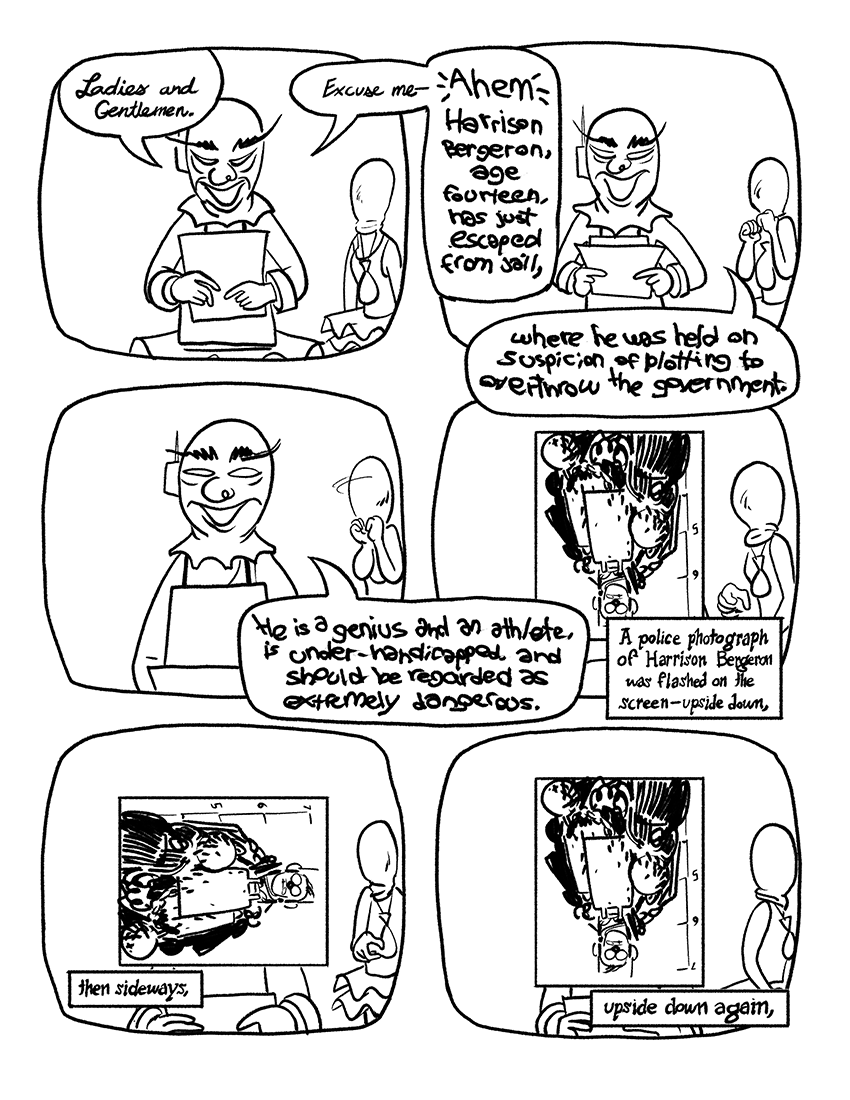 Ladies and
Gentlemen.
Excuse me—
Ahem
Harrison
Bergeron,
age
fourteen,
has just
escaped
from jail,
where he was held on
suspicion of plotting to
overthrow the government.
He is a genius and an athlete,
is under-handicapped, and
should be regarded as
extremely dangerous.
5
6
A police photograph
of Harrison Bergeron
was flashed on the
screen—upside down,
5
6
7
then sideways,
5
6
7
upside down again,